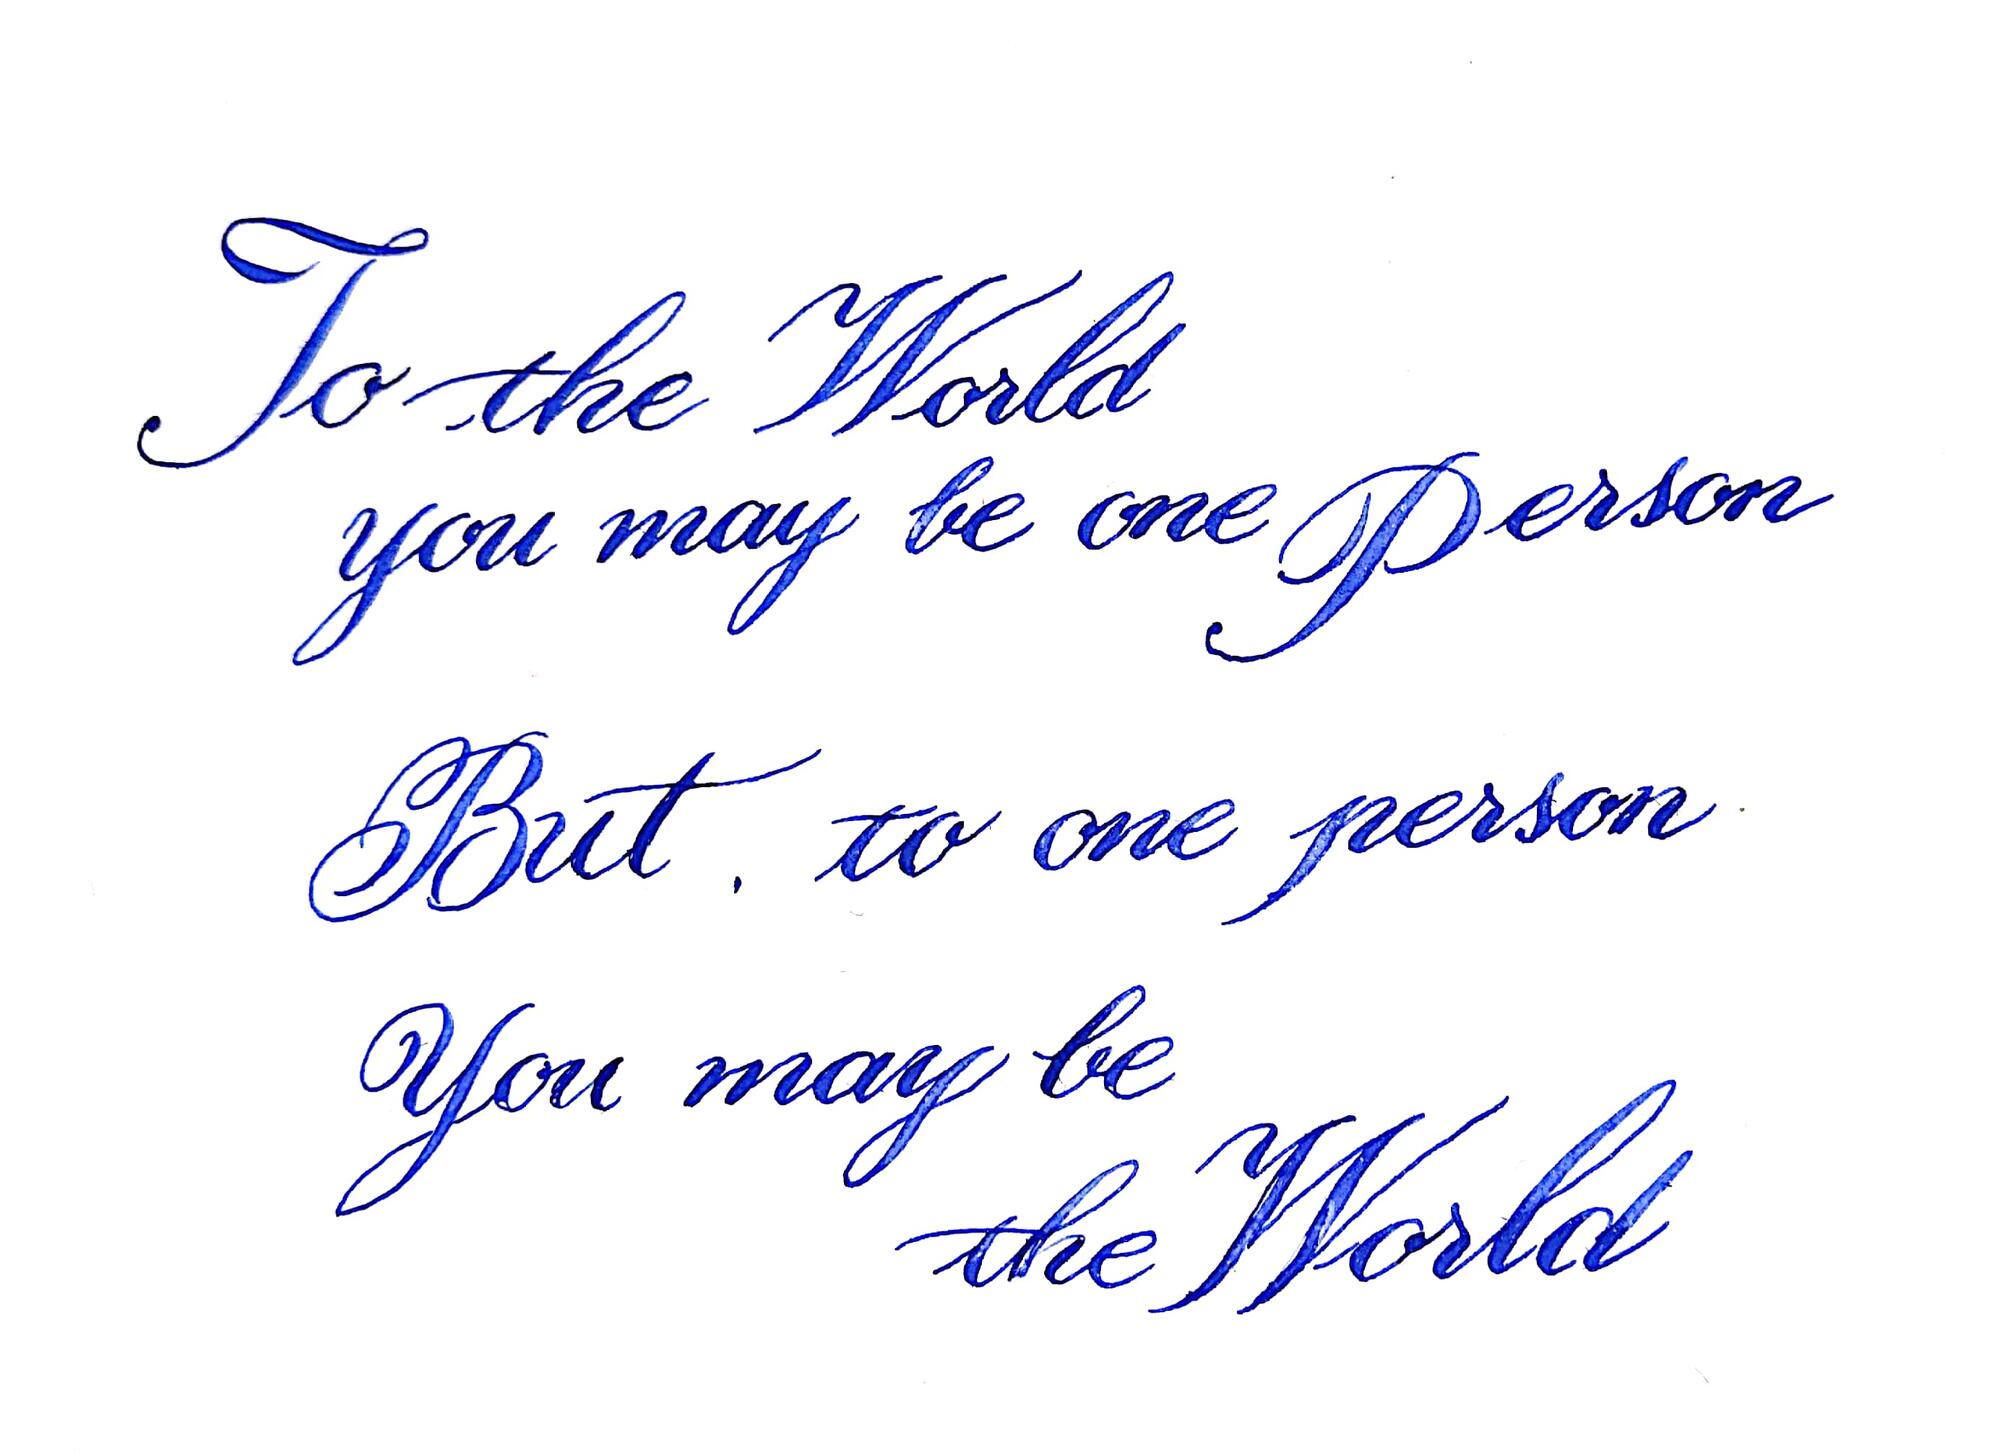 To the World
you may be one Person
But, to one person
You may be
the World